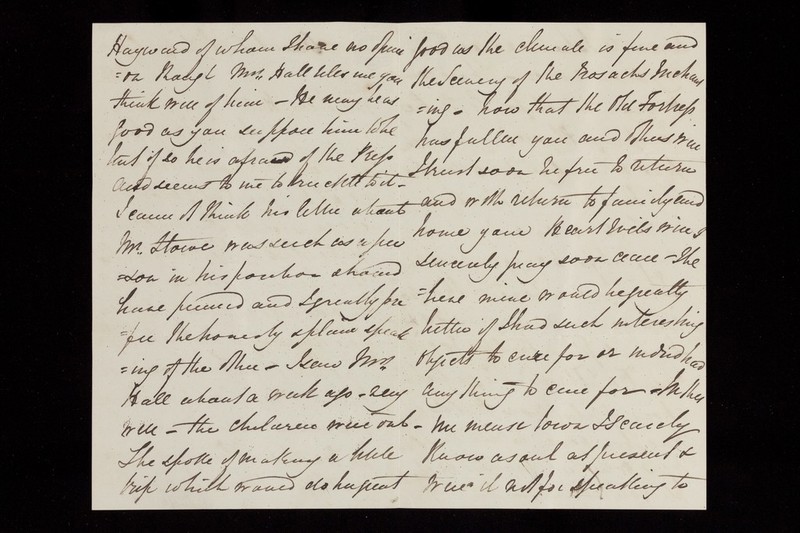 Hayward of whom I have no Opini
=on though Mrs. Hall tells me you
think well of him - He may be as
good as you suppose him to be
but if so he is afraid of the Press
and seems to me to truckle to it -
I cannot think his letter about
Mr. Stowe was such as a per
=son in his position should
have penned and I greatly pre
=fer the honesty & plain speak
=ing of the other - I saw Mrs.
Hall about a week ago - very
well - the children were out -
She spoke of making a little
trip which would do her great
good as the climate is fine and
the Scenery of the Trosachs Inchant
=ing - now that the Old Fortress
has fallen you and others will
I trust soon be free to return
and with return to family and
home your Heart Evils will I
sincerely pray soon cease - I be
=lieve mine would be greatly
better if I had such interesting
Objects to care for or indeed had
anything to care for - In this
immense town I scarcely
know a soul at present &
were it not for speaking to